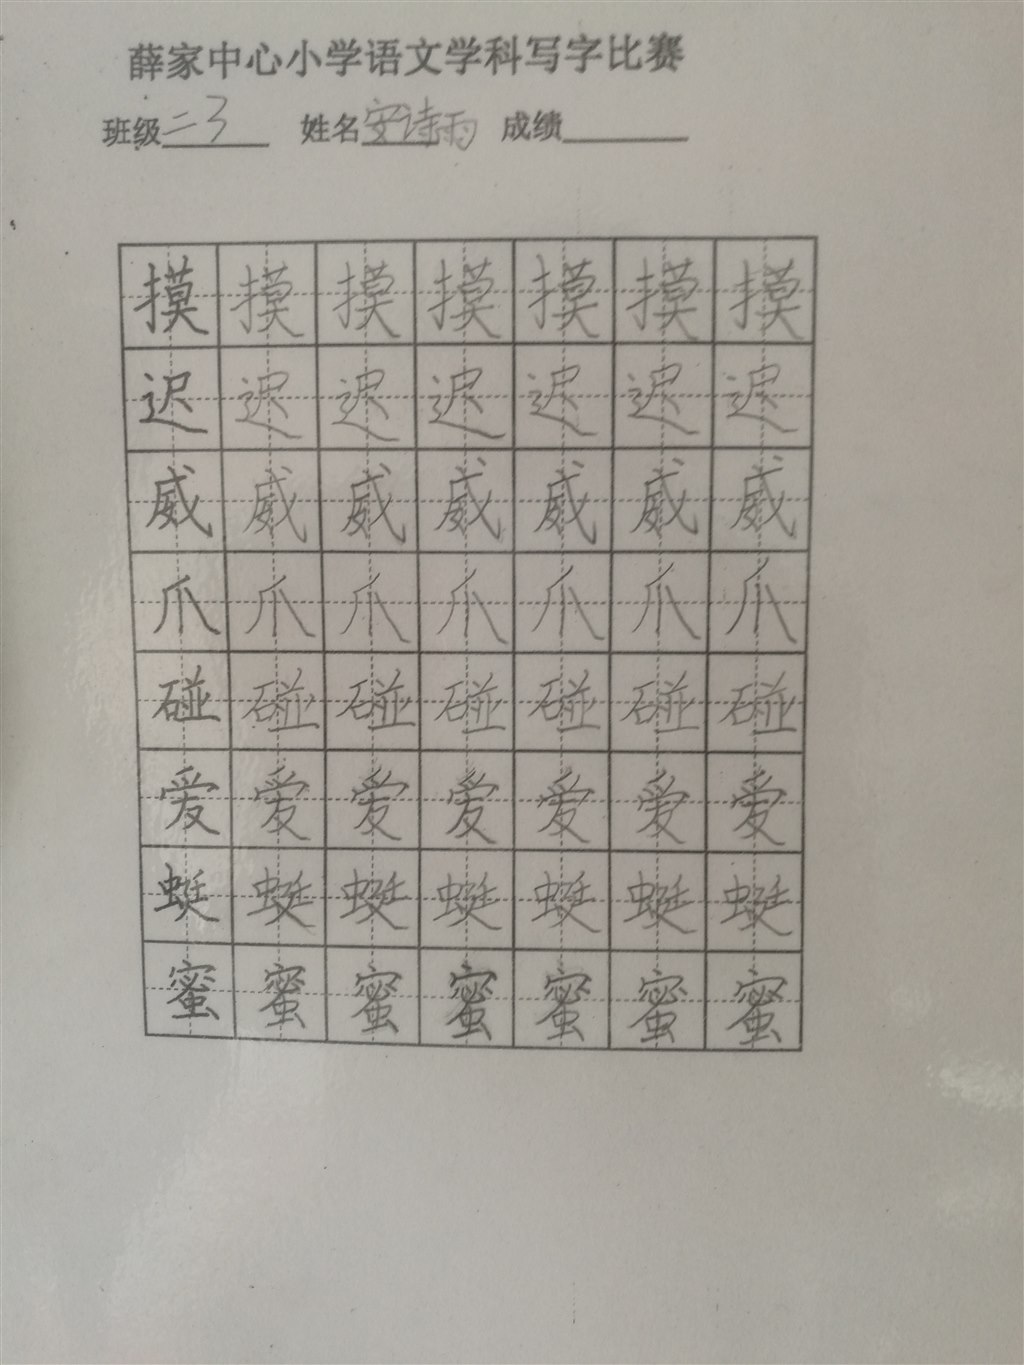 薛家中心小学语文学科写字比赛
班级 二3 姓名 安诗雨 成绩
摸 摸 摸 摸 摸 摸 摸
迟 迟 迟 迟 迟 迟 迟
威 威 威 威 威 威 威
爪 爪 爪 爪 爪 爪 爪
碰 碰 碰 碰 碰 碰 碰
爱 爱 爱 爱 爱 爱 爱
蜓 蜓 蜓 蜓 蜓 蜓 蜓
蜜 蜜 蜜 蜜 蜜 蜜 蜜